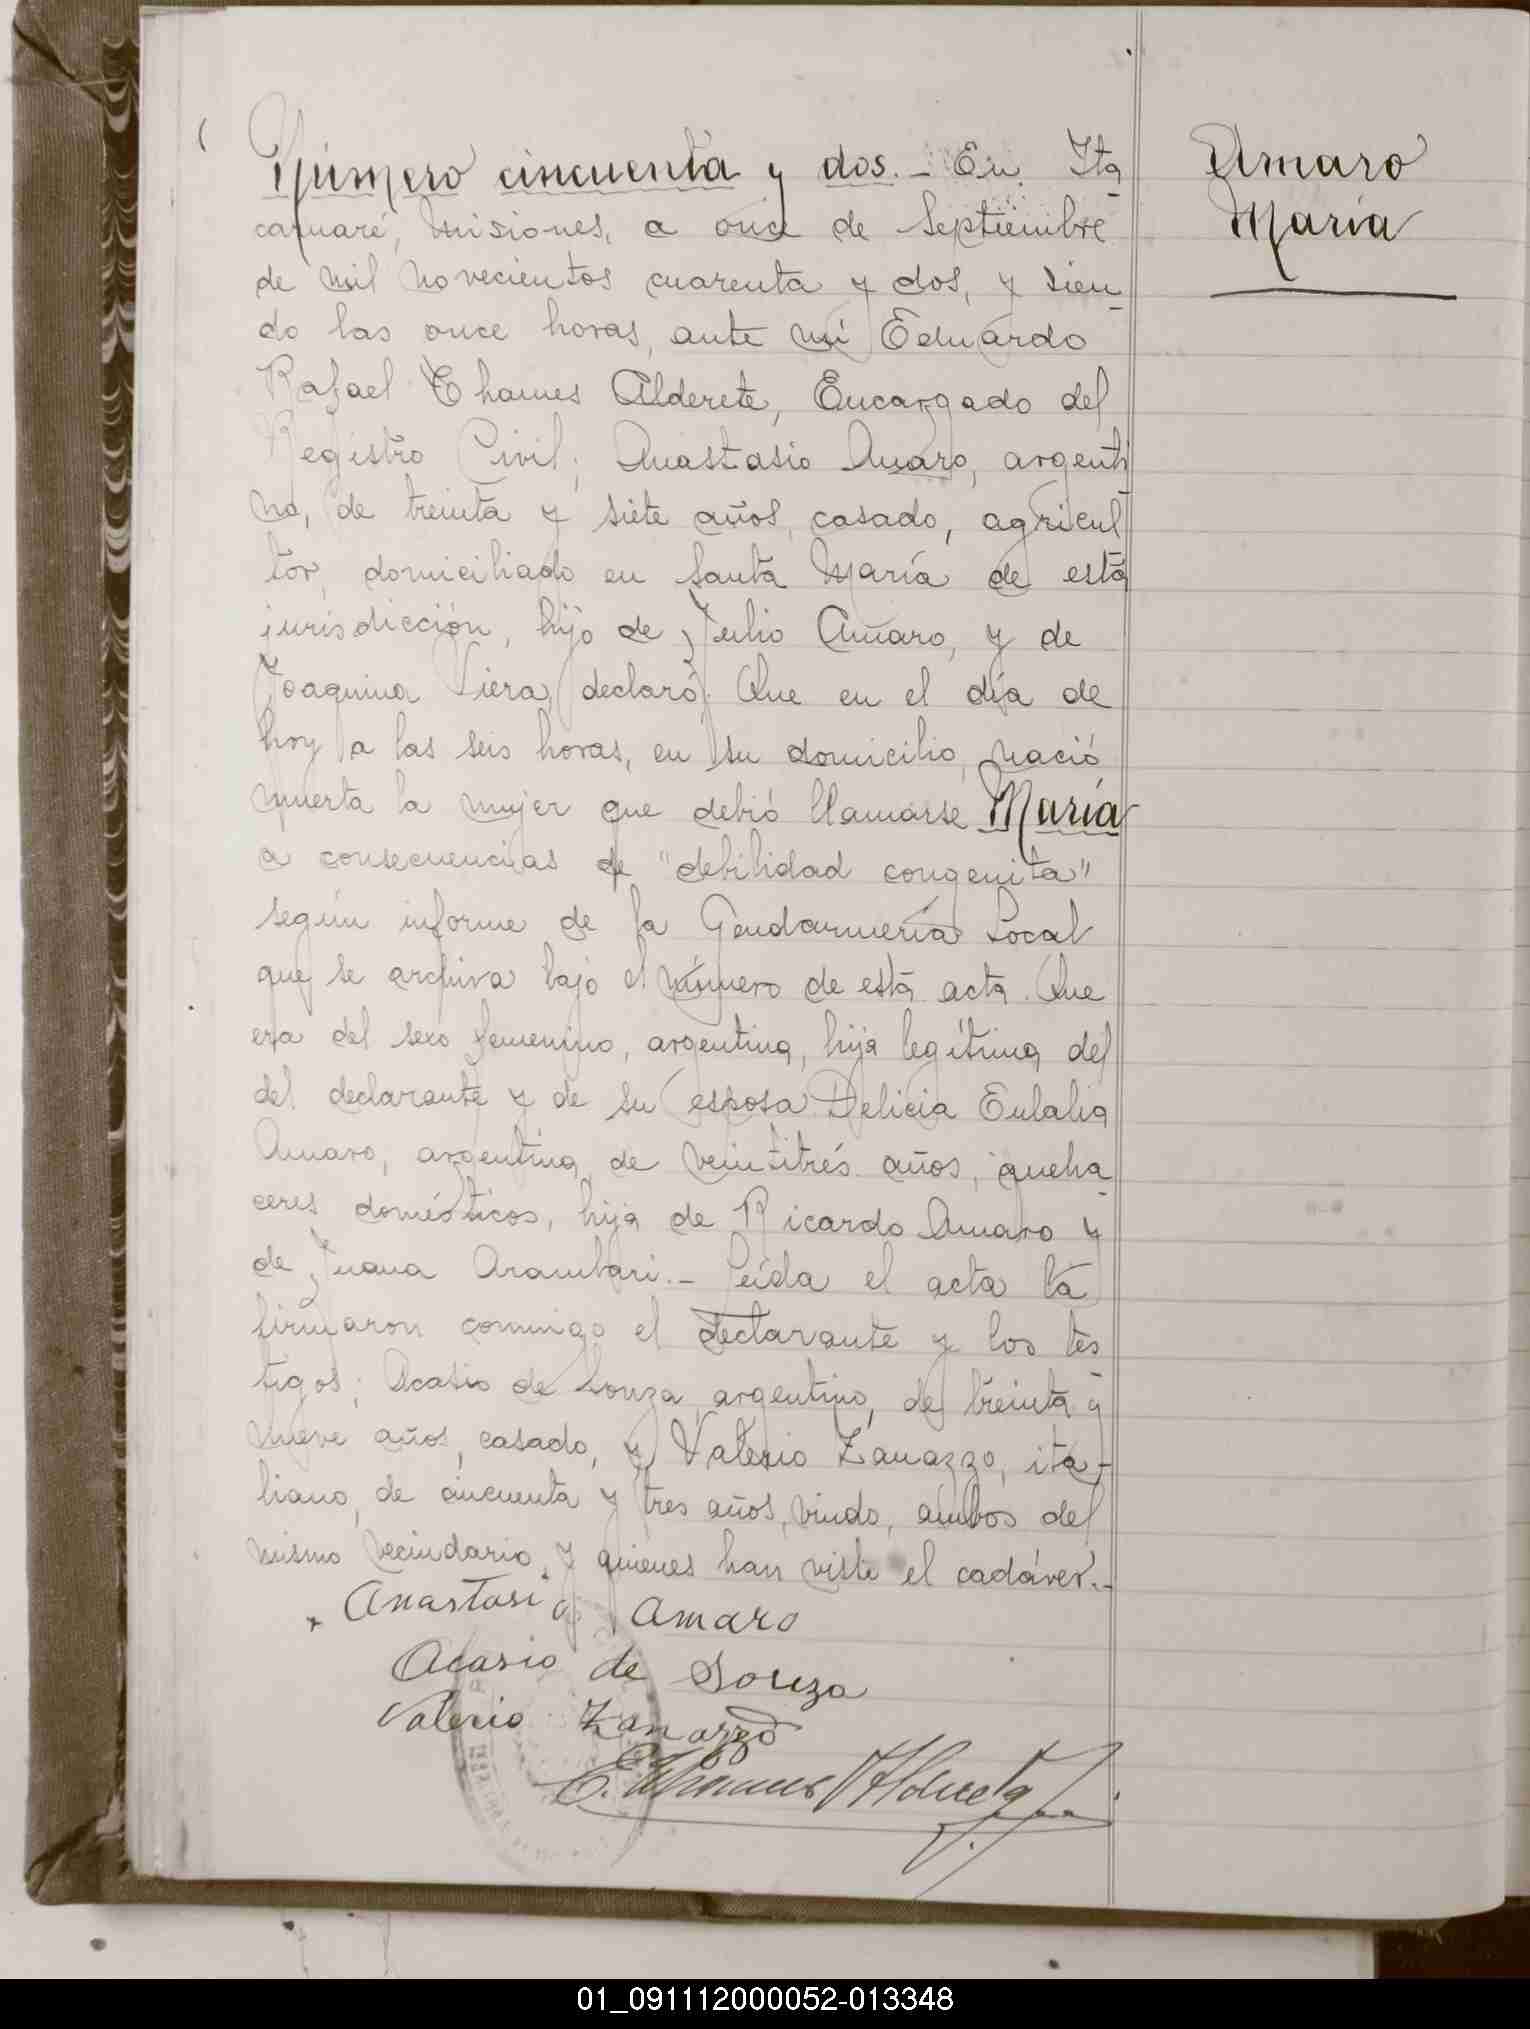 Número cincuenta y dos.- En Ita
caruaré, Misiones, a once de Septiembre
de mil novecientos cuarenta y dos, y sien-
do las once horas, ante mí Eduardo
Rafael Thames Alderete, Encargado del
Registro Civil; Anastasio Amaro, argenti
no, de treinta y siete años, casado, agricul
tor, domiciliado en Santa María de esta
jurisdicción, hijo de Julio Amaro, y de
Joaquina Viera, declaró: Que en el día de
hoy a las seis horas, en su domicilio, nació
muerta la mujer que debió llamarse María
a consecuencias de "debilidad congenita"
según informe de la Gendarmería Local
que se archiva bajo el número de esta acta. Que
era del sexo femenino, argentina, hija legítima del
del declarante y de su esposa Delicia Eulalia
Amaro, argentina, de veintitrés años, queha-
ceres domésticos, hija de Ricardo Amaro y
de Juana Arambari.- Leída el acta la
firmaron conmigo el declarante y los tes-
tigos; Acasio de Souza, argentino, de treinta y
nueve años, casado, y Valerio Zanazzo, ita-
liano, de cincuenta y tres años, viudo, ambos del
mismo vecindario, y quienes han visto el cadáver.-
Anastasio Amaro
Acasio de Souza
Valerio Zanazzo
E. Thames Alderete
Amaro
María
01_091112000052-013348